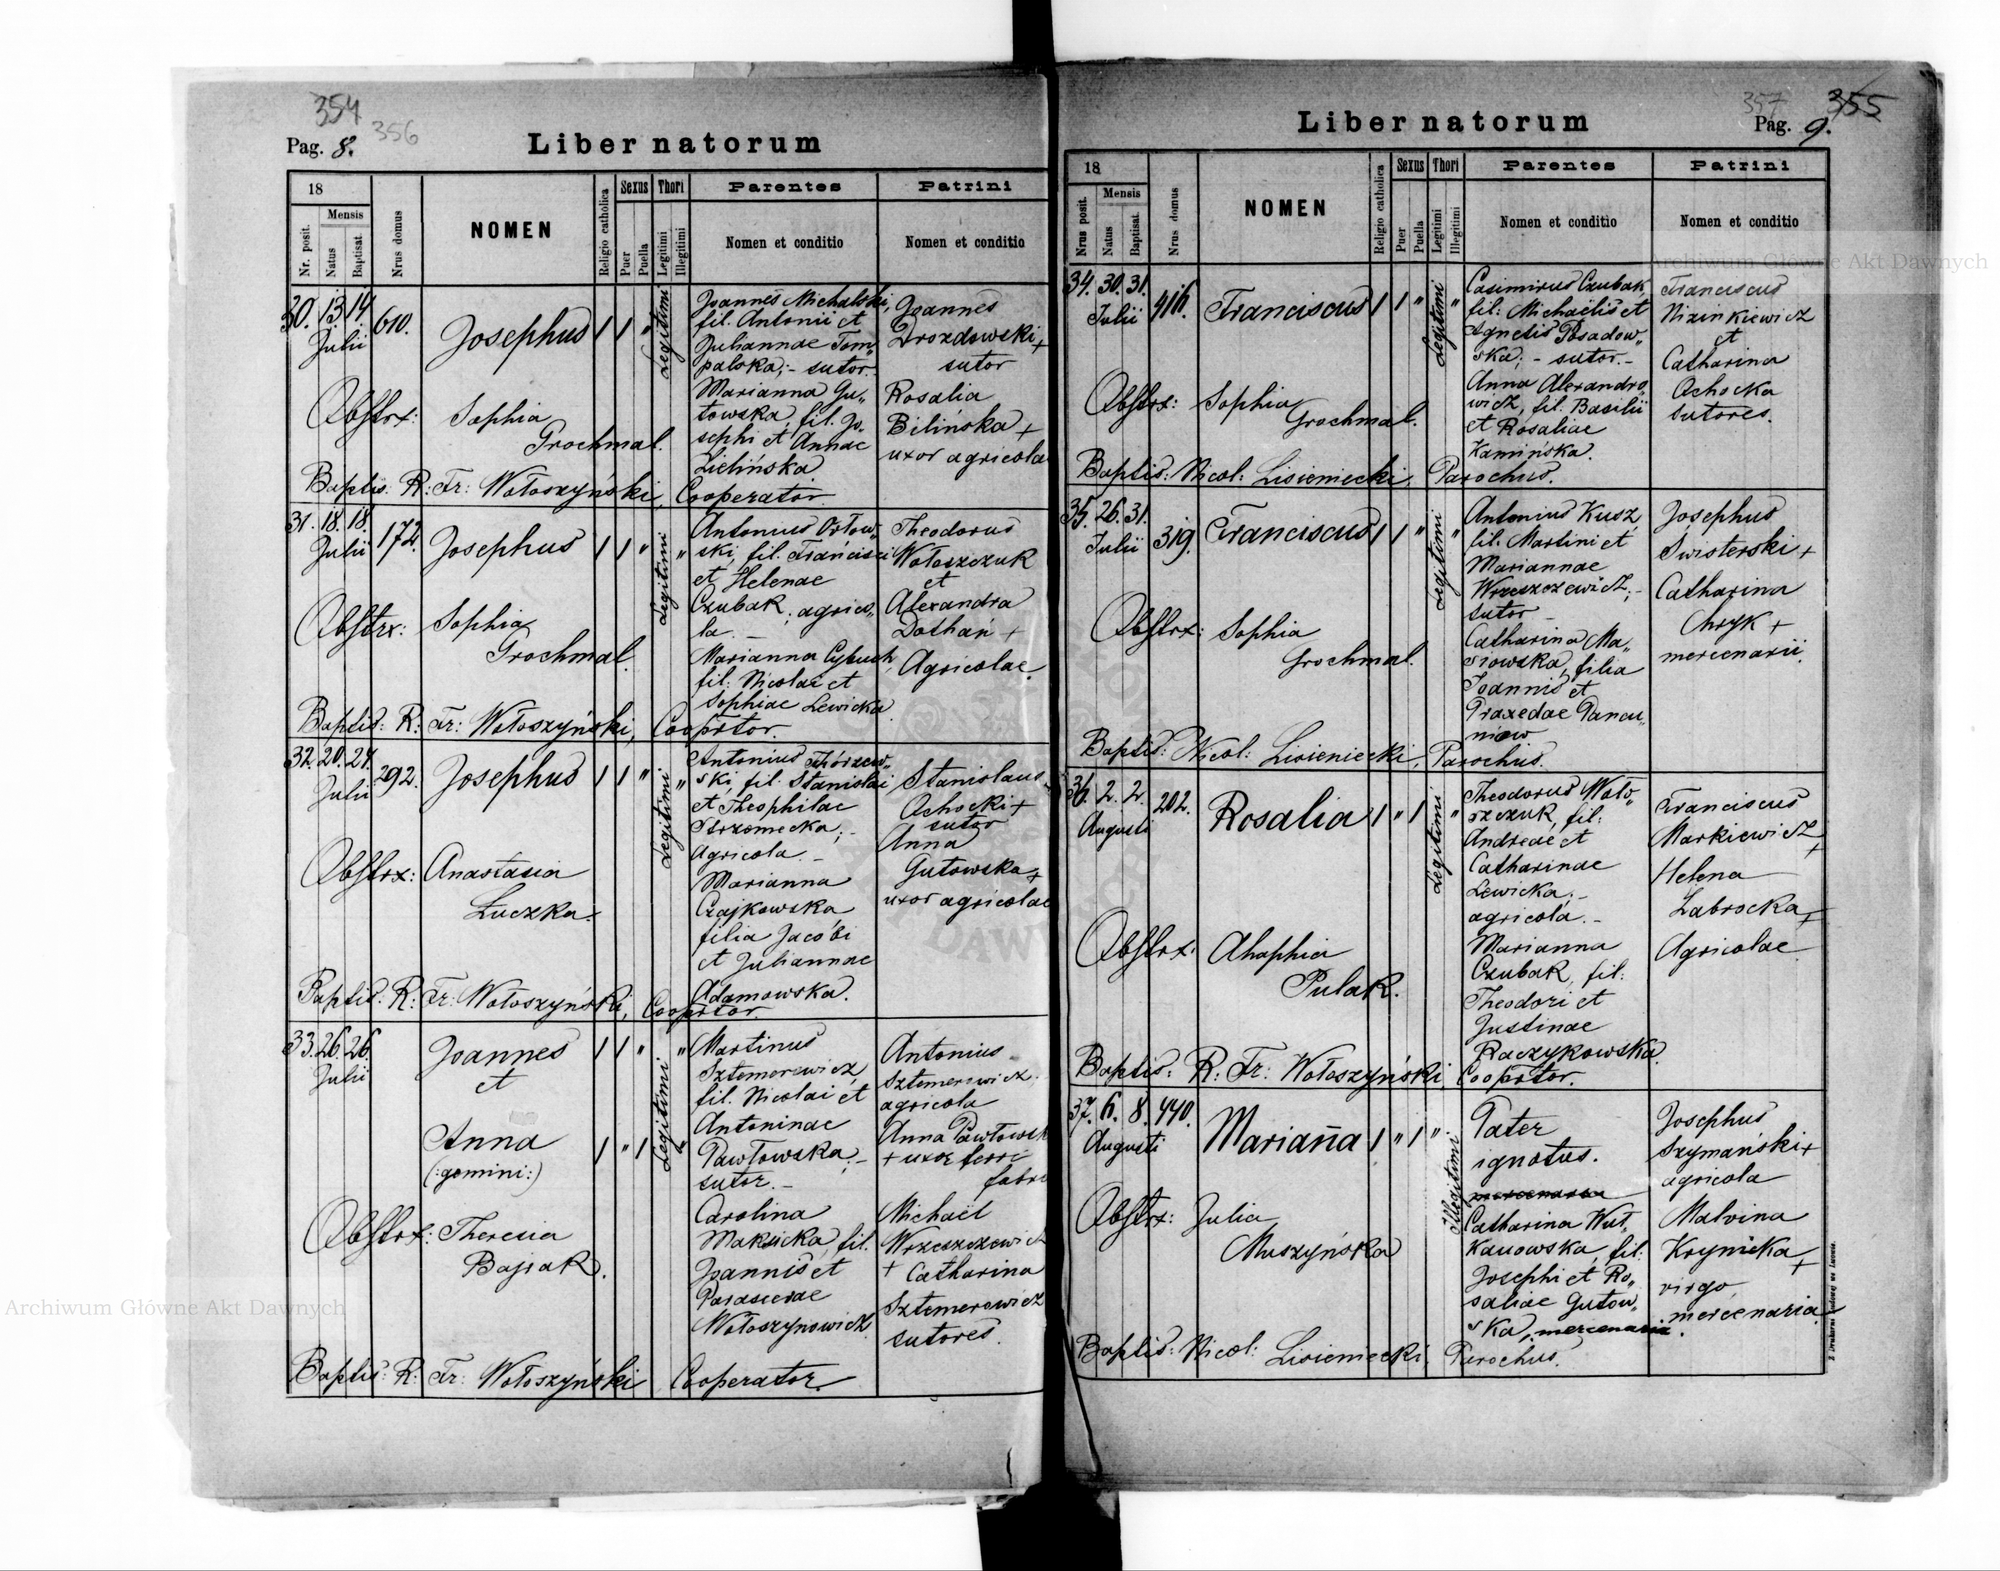 354
356
Pag. 8.
Liber natorum
18
Nr. posit.
Mensis
Natus
Baptisat.
Nrus domus
NOMEN
Religio catholica
Sexus
Puer
Puella
Thori
Legitimi
Illegitimi
Parentes
Nomen et conditio
Patrini
Nomen et conditio
30. 13 14 Julii
610.
Josephus
1 1 "
Legitimi
Joannes Michalski,
fil. Antonii et
Juliannae Tom„
palska; - sutor.
Marianna Gu„
towska, fil. Jo„
sephi et Annae
Zielińska
Joannes
Drozdowski +
sutor
Rosalia
Bilińska +
uxor agricolae
Obstrx: Sophia
Grochmal.
Baptis: R: Fr: Wołoszyński, Cooperator
31. 18. 18. Julii
172.
Josephus
1 1 "
Legitimi
"
Antonius Orłow„
ski, fil. Francisci
et Helenae
Czubak, agrico„
la. -
Marianna Cybuch,
fil: Nicolai et
Sophiae Lewicka
Theodorus
Wołoszczuk
et
Alexandra
Dothań +
Agricolae.
Obstrx: Sophia
Grochmal.
Baptis: R: Fr: Wołoszyński, Cooprtor.
32. 20. 24. Julii
292.
Josephus
1 1 "
Legitimi
"
Antonius
ski, fil. Stanislai
et Theophilae
Strzomecka; -
Agricola. -
Marianna
Czajkowska,
filia Jacobi
et Juliannae
Adamowska.
Stanislaus
Ochocki +
sutor
Anna
Gutowska +
uxor agricolae
Obstrx: Anastasia
Łuczka
Baptis: R: Fr: Wołoszyński, Cooprtor.
33. 26. 26. Julii
Joannes
et
Anna
(:gemini:)
1 1 "
1 " 1
Legitimi
"
Martinus
Sztemerowicz,
fil. Nicolai et
Antoninae
Pawłowska; -
sutor. -
Carolina
Maksicka, fil.
Joannis et
Parascevae
Wołoszynowicz
Antonius
Sztemerowicz
agricola
Anna Pawłowsk
+ uxor ferri
fabri
Michaël
Wrzeszczewicz
+ Catharina
Sztemerowicz
sutores.
Obstrx: Theresia
Bajrak.
Baptis: R: Fr: Wołoszyński Cooperator
357
355
Liber natorum
Pag. 9.
18
Nrus posit.
Mensis
Natus
Baptisat.
Nrus domus
NOMEN
Religio catholica
Sexus
Puer
Puella
Thori
Legitimi
Illegitimi
Parentes
Nomen et conditio
Patrini
Nomen et conditio
34. 30. 31. Julii
416.
Franciscus
1 1 "
Legitimi
"
Casimirus Czubak,
fil: Michaëlis et
Agnetis Posadow„
ska; - sutor. -
Anna Alexandro„
wicz, fil. Basilii
et Rosaliae
Kamińska.
Franciscus
Nizinkiewicz
et
Catharina
Ochocka
sutores.
Obstrx: Sophia
Grochmal.
Baptis: Nicol: Lisieniecki, Parochus.
35. 26. 31. Julii
319.
Franciscus
1 1 "
Legitimi
"
Antonius Kusz,
fil. Martini et
Mariannae
Wrzeszczewicz; -
sutor -
Catharina Ma„
słowska, filia
Joannis et
Praxedae Pancu„
niow
Josephus
Swisterski +
Catharina
Chryk +
mercenarii.
Obstrx: Sophia
Grochmal.
Baptis: Nicol: Lisieniecki, Parochus.
36. 2. 2. Augusti
202.
Rosalia
1 " 1
Legitimi
"
Theodorus Woło„
szczuk, fil:
Andreae et
Catharinae
Lewicka; -
agricola. -
Marianna
Czubak, fil:
Theodori et
Justinae
Raczykowska.
Franciscus
Markiewicz
+
Helena
Zabrocka +
Agricolae
Obstrx: Ahaphia
Pulak.
Baptis: R: Fr: Wołoszyński, Cooprtor.
37. 6. 8. Augusti
440.
Mariana
1 " 1
"
Illegitimi
Pater
ignotus.
mercenaria
Catharina Wuł„
kanowska, fil:
Josephi et Ro„
saliae Gutow„
ska, mercenaria.
Josephus
Szymański +
agricola
Malvina
Krynicka +
virgo,
mercenaria.
Obstrx: Julia
Muszyńska
Baptis: Nicol: Lisieniecki, Parochus.
Z Drukarni Ludowej we Lwowie.
Archiwum Główne Akt Dawnych
Archiwum Główne Akt Dawnych